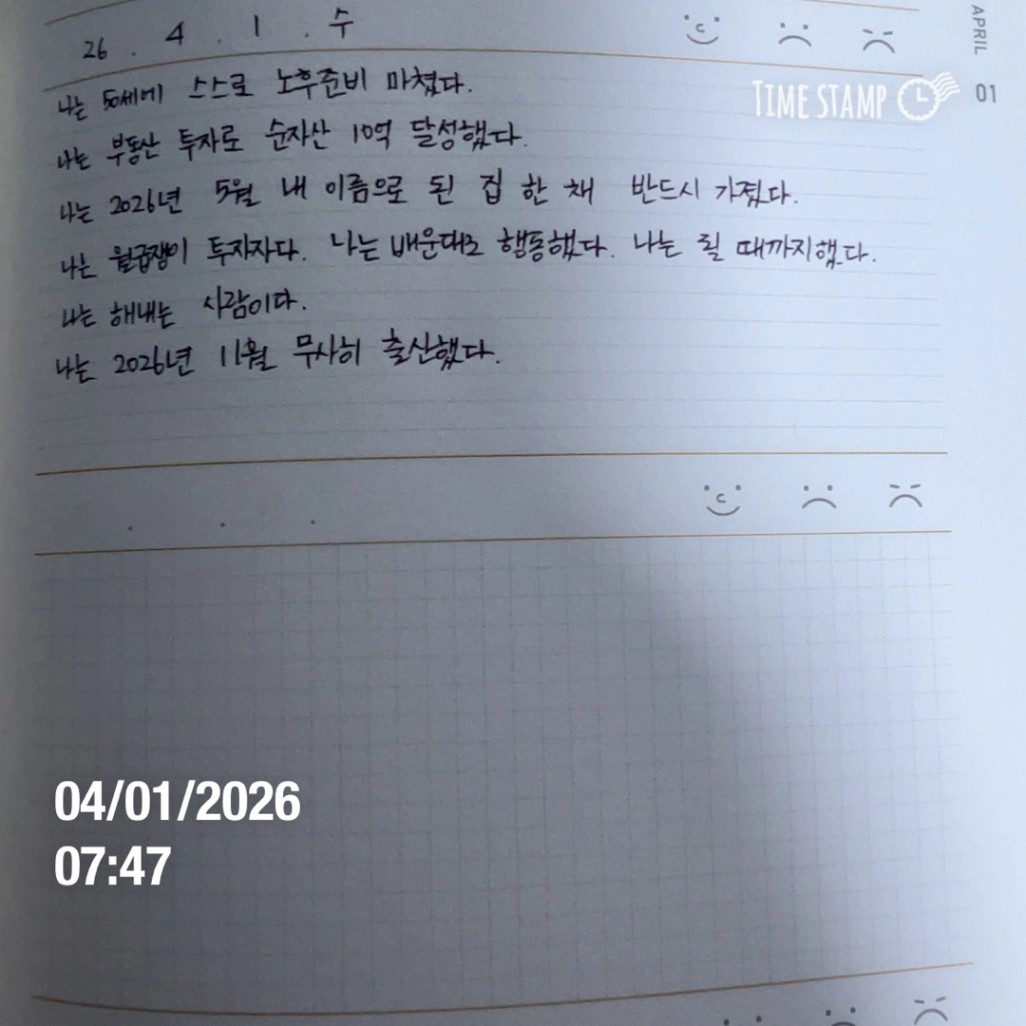 26 . 4 . 1 . 수
APRIL
01
TIME STAMP
나는 50세에 스스로 노후준비 마쳤다.
나는 부동산 투자로 순자산 10억 달성했다.
나는 2026년 5월 내 이름으로 된 집 한 채 반드시 가졌다.
나는 월급쟁이 투자자다. 나는 배운대로 행동했다. 나는 될 때까지했다.
나는 해내는 사람이다.
나는 2026년 11월 무사히 출산했다.
04/01/2026
07:47